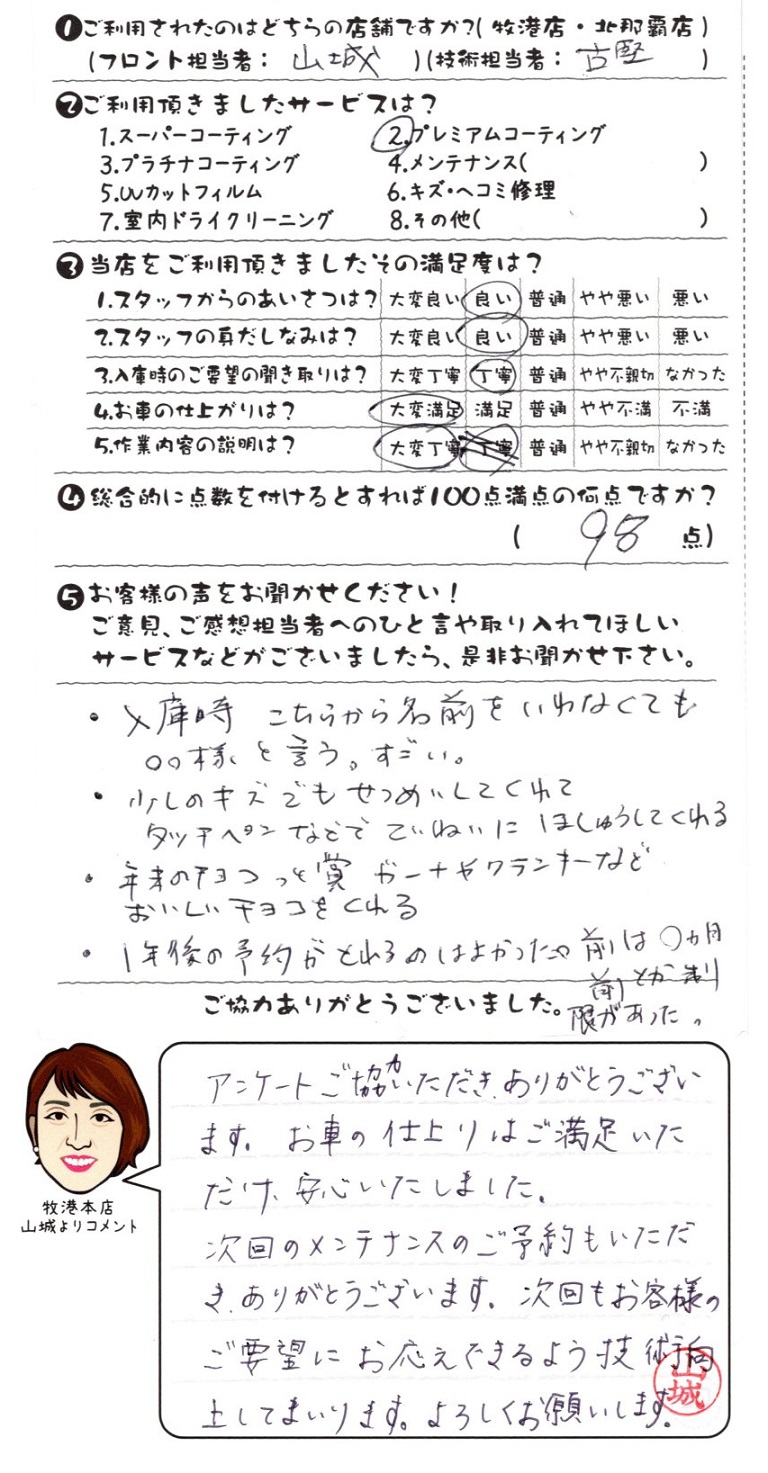 ❶ご利用されたのはどちらの店舗ですか?(牧港店・北那覇店)
(フロント担当者: 山城 )(技術担当者: 古堅 )
❷ご利用頂きましたサービスは?
1.スーパーコーティング 2.プレミアムコーティング
3.プラチナコーティング 4.メンテナンス( )
5.UVカットフィルム 6.キズ・ヘコミ修理
7.室内ドライクリーニング 8.その他( )
❸当店をご利用頂きましたその満足度は?
1.スタッフからのあいさつは? 大変良い 良い 普通 やや悪い 悪い
2.スタッフの身だしなみは? 大変良い 良い 普通 やや悪い 悪い
3.入庫時のご要望の聞き取りは? 大変丁寧 丁寧 普通 やや不親切 なかった
4.お車の仕上がりは? 大変満足 満足 普通 やや不満 不満
5.作業内容の説明は? 大変丁寧 丁寧 普通 やや不親切 なかった
❹総合的に点数を付けるとすれば100点満点の何点ですか?
( 98 点)
❺お客様の声をお聞かせください!
ご意見、ご感想担当者へのひと言や取り入れてほしい
サービスなどがございましたら、是非お聞かせ下さい。
・入庫時 こちらから名前をいわなくても
○○様と言う。すごい。
・少しのキズでもせつめいしてくれて
タッチペンなどで ていねいに ほしゅうしてくれる
・年末のチョコっと賞 ガーナやクランキーなど
おいしいチョコをくれる
・1年後の予約がとれるのはよかった。前は○ヵ月
前とか制
限があった。
ご協力ありがとうございました。
アンケートご協力いただき、ありがとうござい
ます。お車の仕上りはご満足いた
だけ、安心いたしました。
次回のメンテナンスのご予約もいただ
き、ありがとうございます。次回もお客様の
ご要望にお応えできるよう技術向
上してまいります。よろしくお願いします。
山城
牧港本店
山城よりコメント